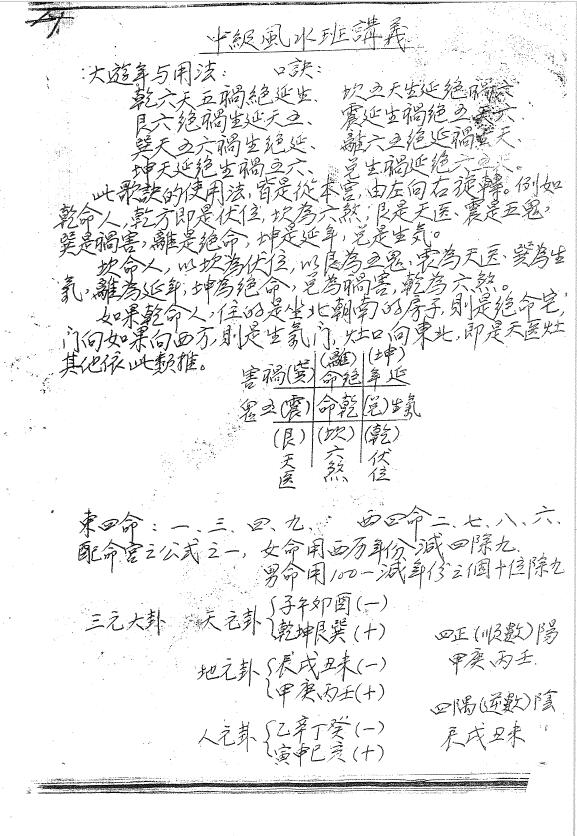 中級風水班講義
大遊年与用法： 口訣：
乾六天五禍絕延生、 坎五天生延絕禍六
艮六絕禍生延天五、 震延生禍絕五天六
巽天五六禍生絕延、 離六五絕延禍生天、
坤天延絕生禍五六、 兌生禍延絕六五天。
此歌訣的使用法，皆是從本宮，由左向右旋轉。例如
乾命人，乾方即是伏位，坎為六煞，艮是天医、震是五鬼，
巽是禍害，離是絕命，坤是延年，兌是生氣。
坎命人，以坎為伏位，以艮為五鬼、震為天医、巽為生
氣，離為延年，坤為絕命，兌為禍害，乾為六煞。
如果乾命人，住的是坐北朝南的房子，則是絕命宅，
门向如果向西方，則是生氣门，灶口向東北，即是天医灶
其他依此類推。
害禍(巽) (離)命絕 (坤)年延
鬼五(震) 命乾 (兌)生氣
(艮)天医 (坎)六煞 (乾)伏位
東四命：一、三、四、九、 西四命二、七、八、六、
配命宮之公式之一，女命用西万年份減四除九
男命用100－減年份之個十位除九
三元大卦 天元卦 子午卯酉(一)
乾坤艮巽(十)
四正(順數)陽
地元卦 辰戌丑未(一)
甲庚丙壬
甲庚丙壬(十)
四隅(逆數)陰
人元卦 乙辛丁癸(一)
辰戌丑未
寅申巳亥(十)